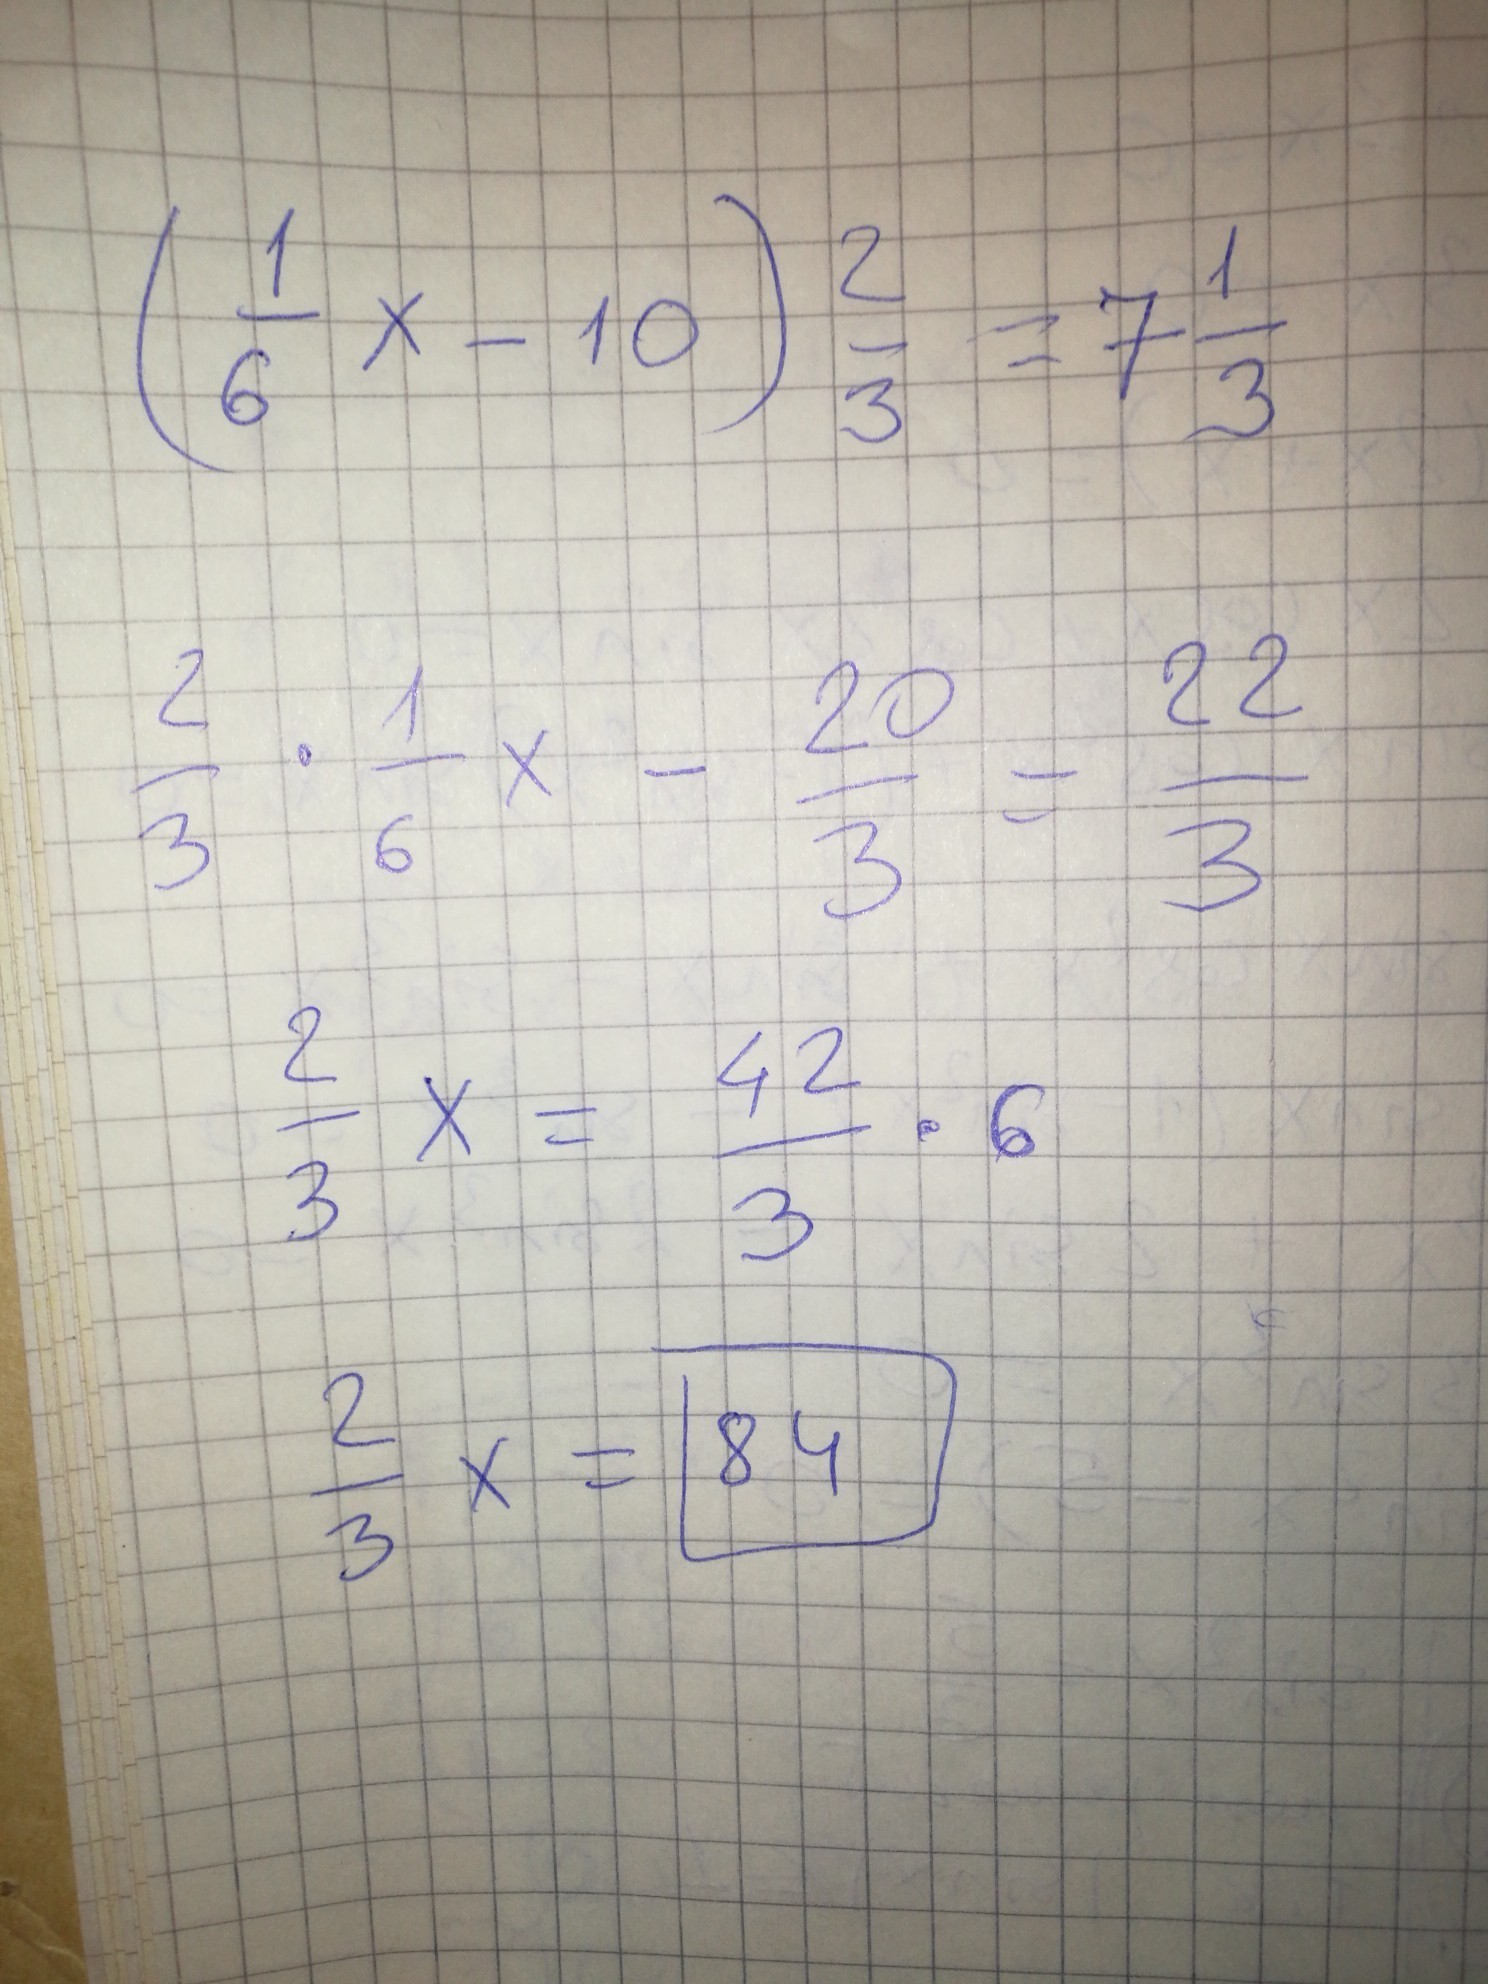 (1/6 x - 10) 2/3 = 7 1/3
2/3 · 1/6 x - 20/3 = 22/3
2/3 x = 42/3 · 6
2/3 x = 84